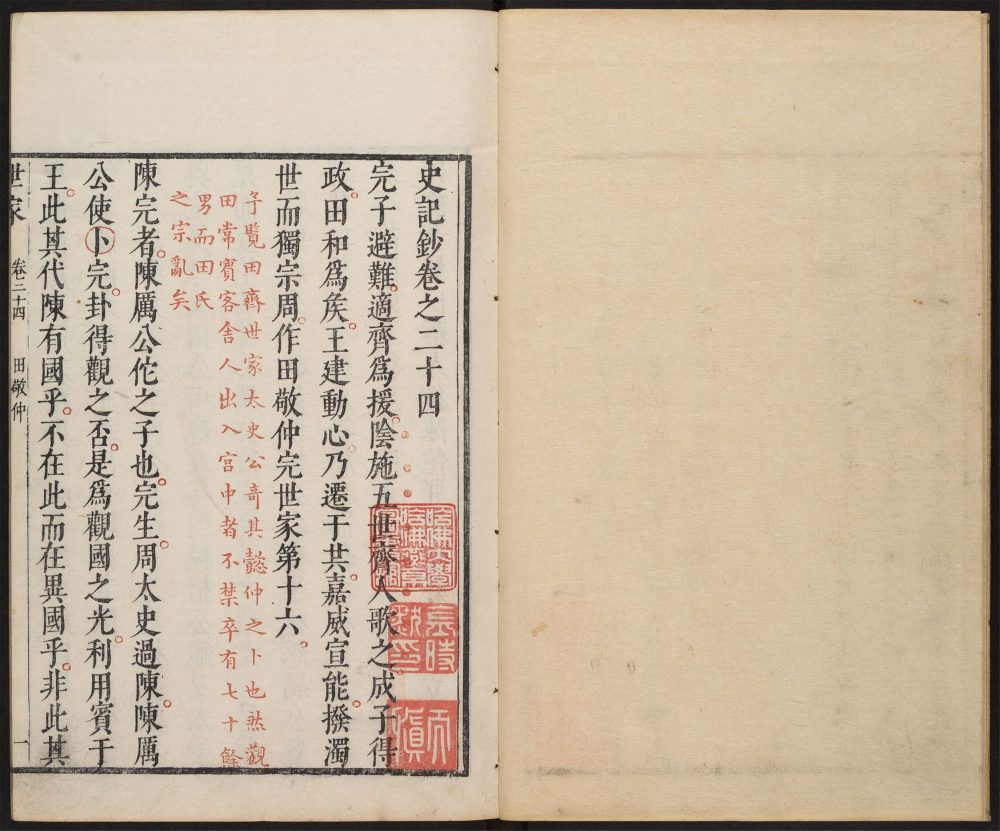 史記鈔卷之二十四
完子避難。適齊爲援。陰施五世。齊人歌之。成子得
政。田和爲矦。王建動心。乃遷于共。嘉威宣能。撥濁
世而獨宗周。作田敬仲完世家第十六。
予覽田齊世家太史公奇其懿仲之卜也然觀
田常賓客舍人出入宮中者不禁卒有七十餘
男而田氏
之宗亂矣
陳完者。陳厲公佗之子也。完生。周太史過陳。陳厲
公使卜完。卦得觀之否。是爲觀國之光。利用賓于
王。此其代陳有國乎。不在此而在異國乎。非此其
世家 卷二十四 田敬仲 一
哈佛大學
哈佛